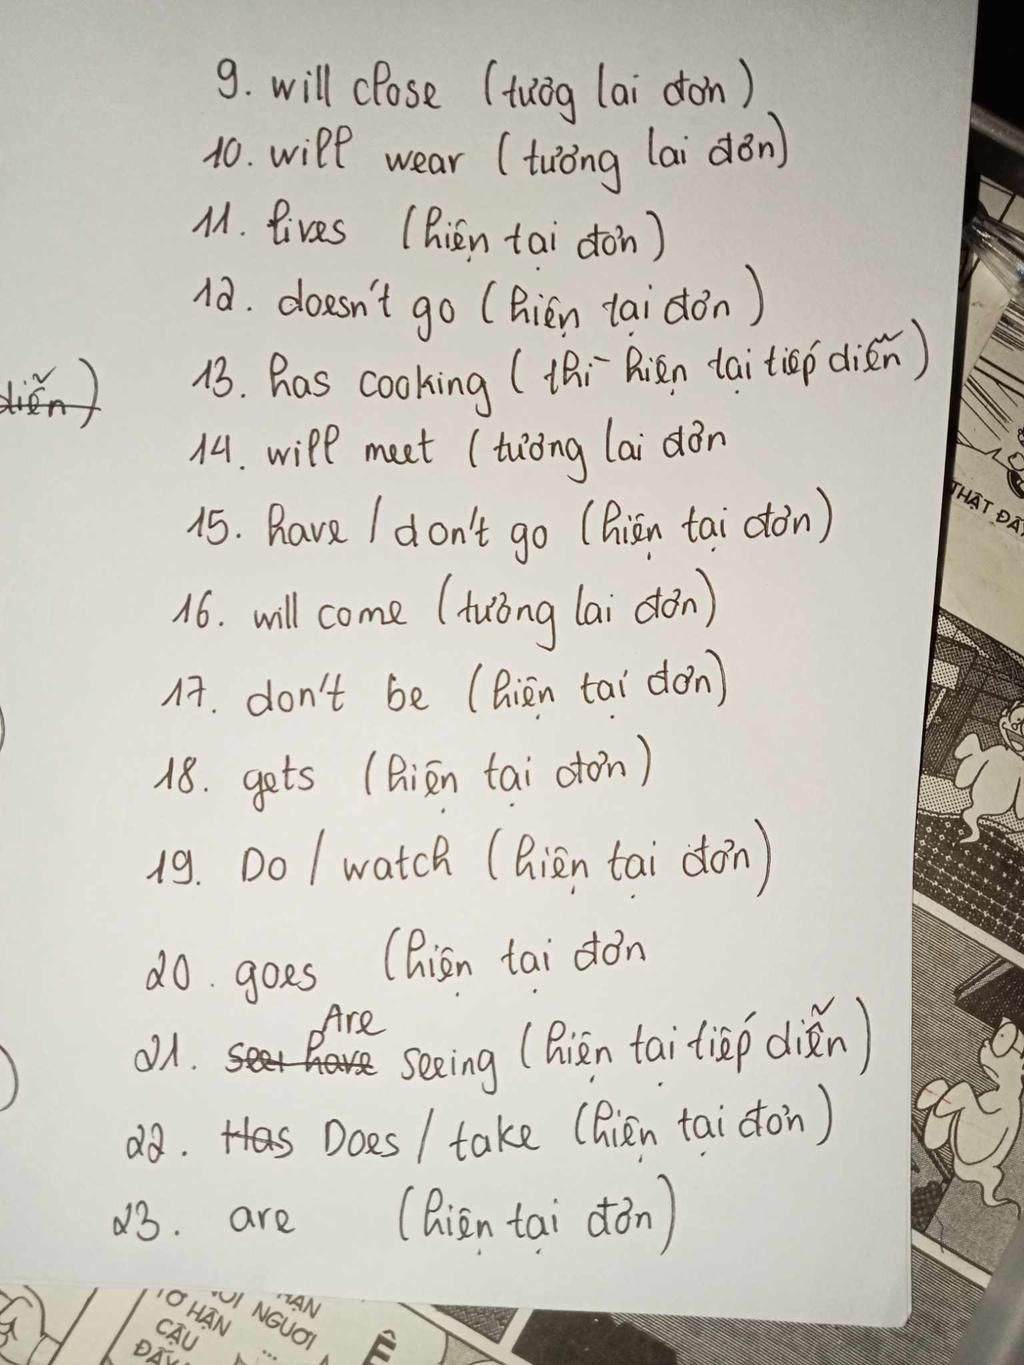 9. will close (tươg lai đơn)
10. will wear (tương lai đơn)
11. lives (hiện tại đơn)
12. doesn't go (hiện tại đơn)
diễn)
13. has cooking (thì hiện tại tiếp diễn)
14. will meet (tương lai đơn
15. have / don't go (hiện tại đơn)
16. will come (tương lai đơn)
17. don't be (hiện tại đơn)
18. gets (hiện tại đơn)
19. Do / watch (hiện tại đơn)
20. goes (hiện tại đơn
Are
21. see have seeing (hiện tại tiếp diễn)
22. Has Does / take (hiện tại đơn)
23. are (hiện tại đơn)
THẬT ĐẤ
NGƯƠI
HẬN
CẬU
ĐẤY
...